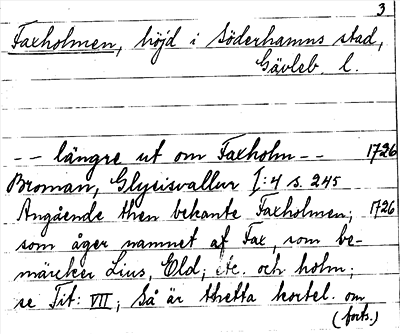 3
Faxholmen, höjd i Söderhamns stad,
Gävleb. l.
-- längre ut om Faxholm -- 1726
Broman, Glysisvallur I:4 s. 245
Angående then bekante Faxholmen; 1726
som äger namnet af Fax, som be-
märcker Lius, Eld; etc. och holm;
se Tit: VII; Så är thetta kortel. om
(forts.)